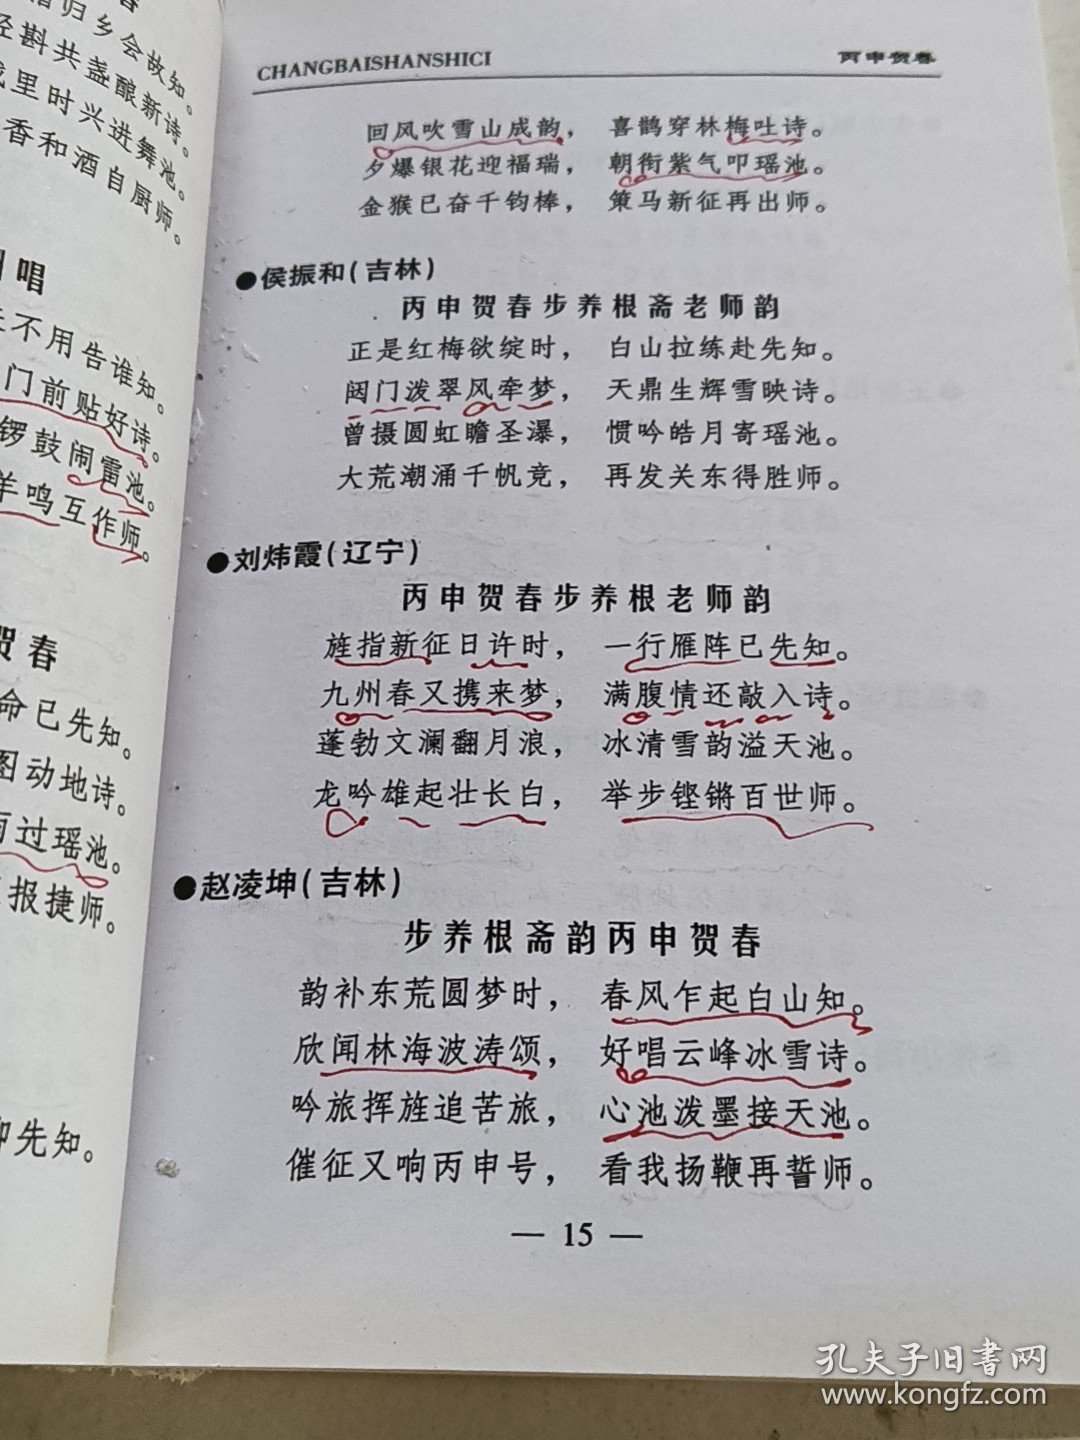 归乡会故知。
斟共盏酿新诗。
里时兴进舞池。
香和酒自厨师。
唱
不用告谁知。
门前贴好诗。
锣鼓闹雷池。
羊鸣互作师。
贺春
命已先知。
图动地诗。
雨过瑶池。
报捷师。
卿先知。
CHANGBAISHANSHICI 丙申贺春
回风吹雪山成韵， 喜鹊穿林梅吐诗。
夕爆银花迎福瑞， 朝衔紫气叩瑶池。
金猴已奋千钧棒， 策马新征再出师。
●侯振和(吉林)
丙申贺春步养根斋老师韵
正是红梅欲绽时， 白山拉练赴先知。
闼门泼翠风牵梦， 天鼎生辉雪映诗。
曾摄圆虹瞻圣瀑， 惯吟皓月寄瑶池。
大荒潮涌千帆竞， 再发关东得胜师。
●刘炜霞(辽宁)
丙申贺春步养根老师韵
旌指新征日许时， 一行雁阵已先知。
九州春又携来梦， 满腹情还敲入诗。
蓬勃文澜翻月浪， 冰清雪韵溢天池。
龙吟雄起壮长白， 举步铿锵百世师。
●赵凌坤(吉林)
步养根斋韵丙申贺春
韵补东荒圆梦时， 春风乍起白山知。
欣闻林海波涛颂， 好唱云峰冰雪诗。
吟旅挥旌追苦旅， 心池泼墨接天池。
催征又响丙申号， 看我扬鞭再誓师。
— 15 —
孔夫子旧書网
www.kongfz.com